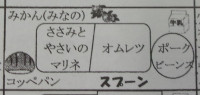 みかん(みなの)
ささみと
やさいの
マリネ
オムレツ
ポーク
ビーンズ
コッペパン
スプーン